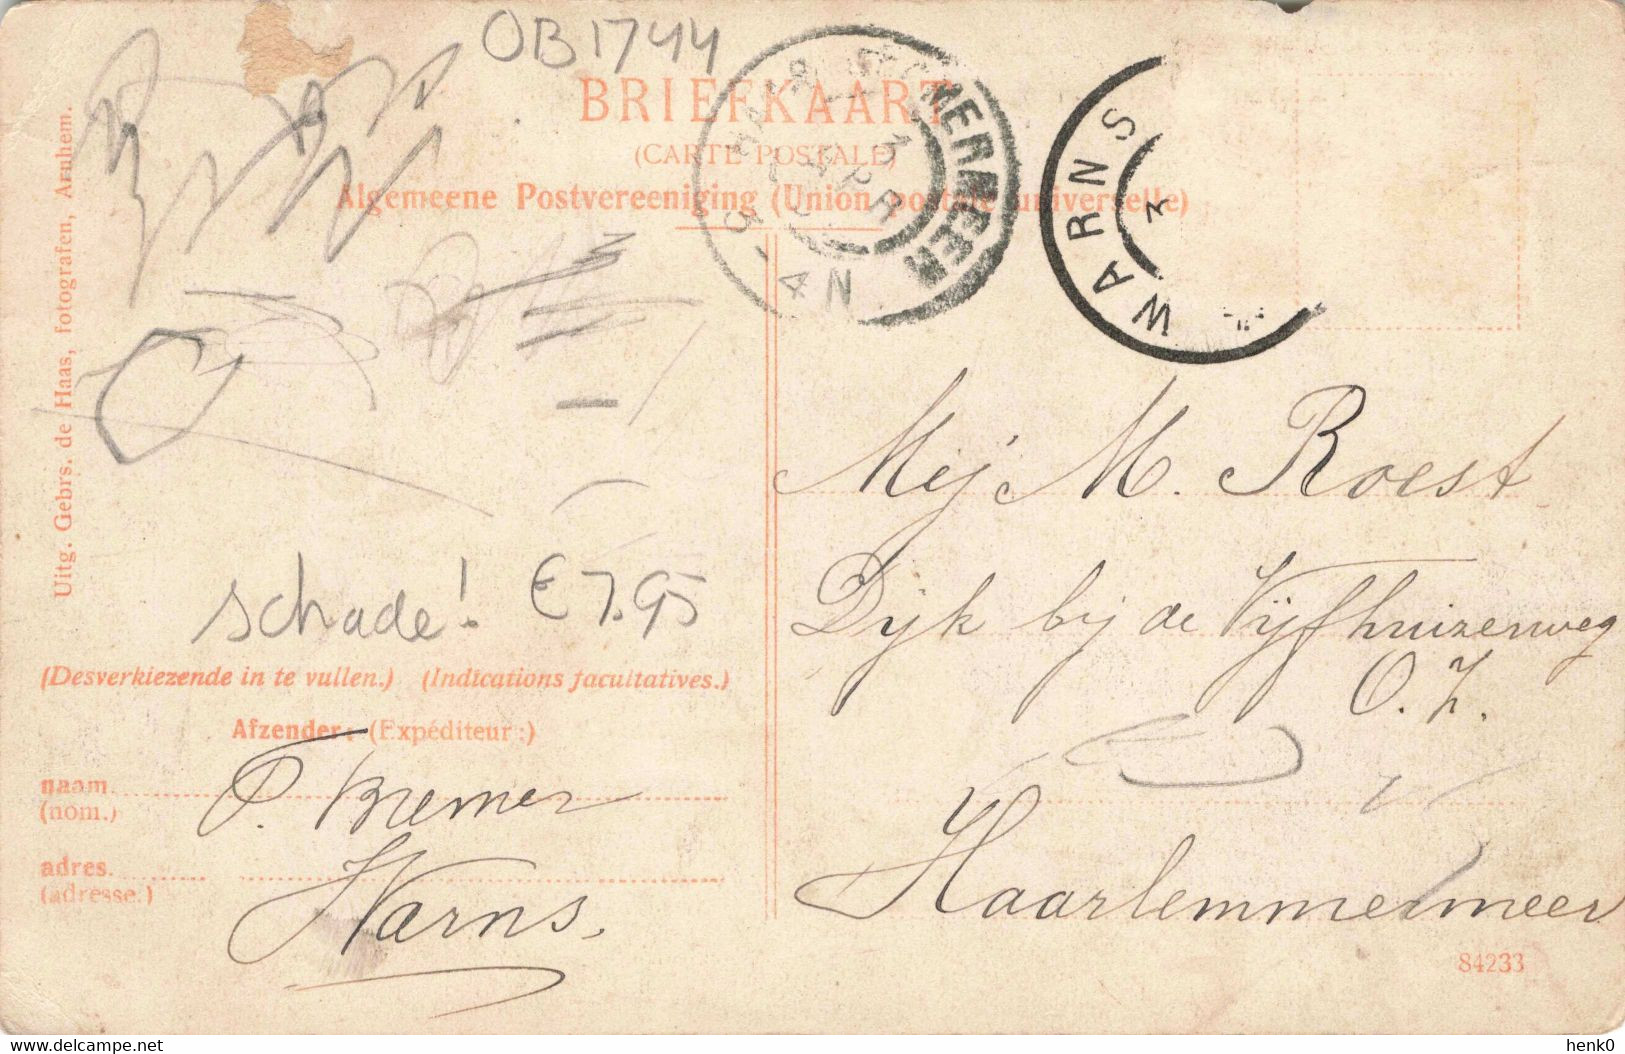 OB1744
BRIEFKAART
(CARTE POSTALE)
Algemeene Postvereeniging (Union postale universelle)
Uitg. Gebrs. de Haas, fotografen, Arnhem.
MERMEER
5-4 N
APR
WARNS
3
schade! € 7.95
(Desverkiezende in te vullen.) (Indications facultatives.)
Afzender: (Expéditeur:)
naam
(nom.)
P. Bremer
adres.
(adresse.)
Warns.
Mej M. Roest
Dijk bij de Vijfhuizerweg
O.Z.
Haarlemmermeer
84233
delcampe.net
henk0